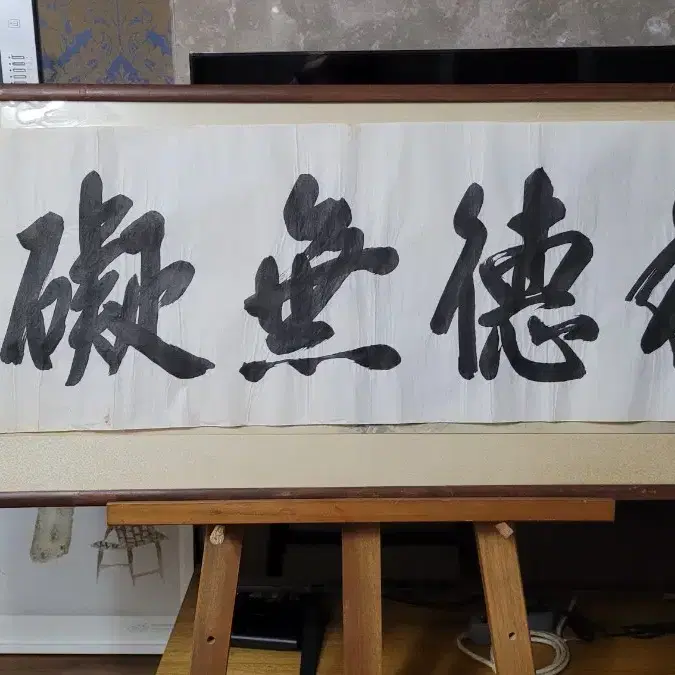 德無礙